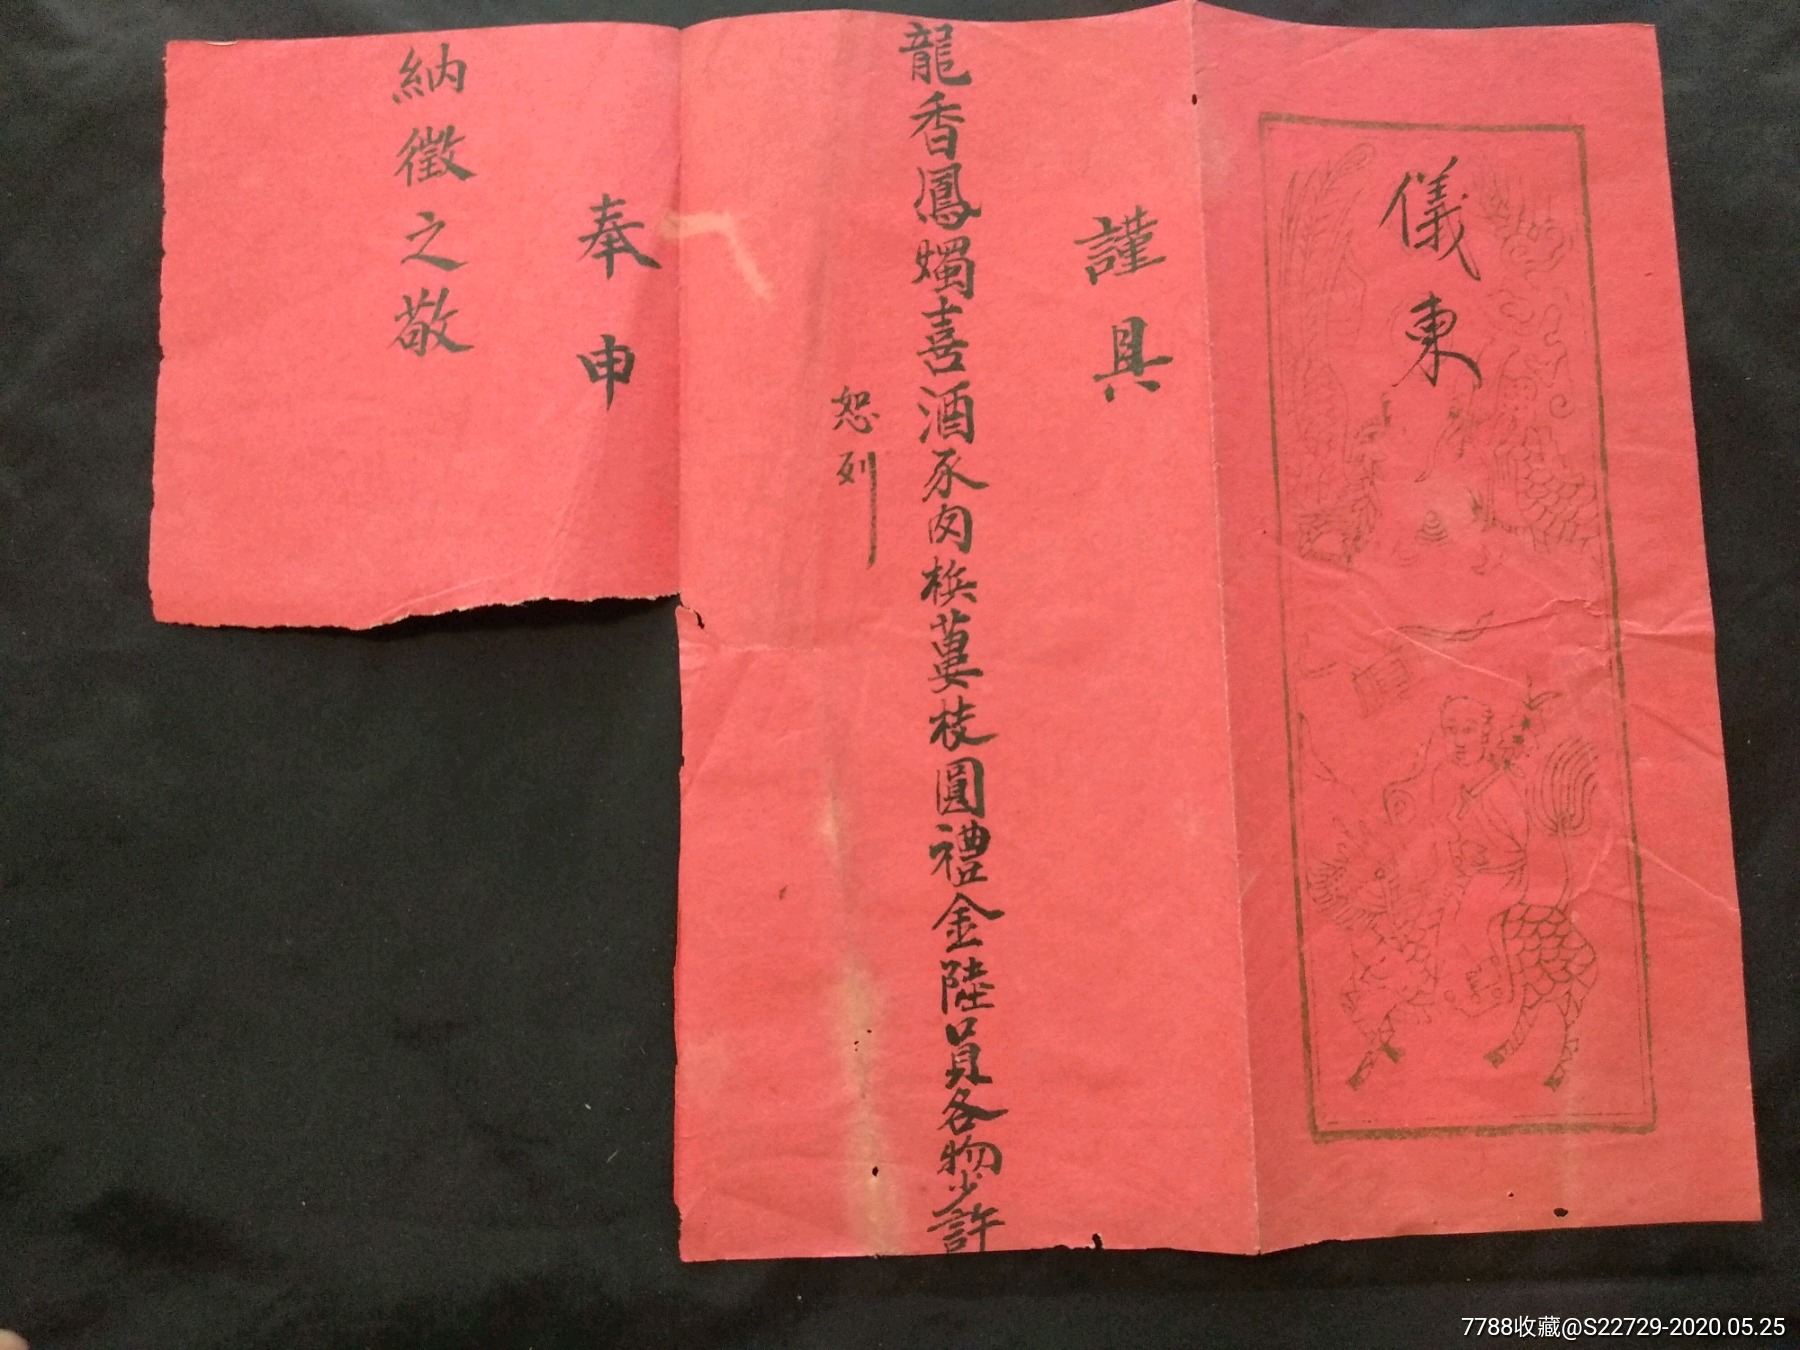 儀柬
謹具
龍香鳳燭喜酒豕肉梹蔞枝圓禮金陸員各物少許
恕列
奉申
納徵之敬
7788收藏@S22729-2020.05.25